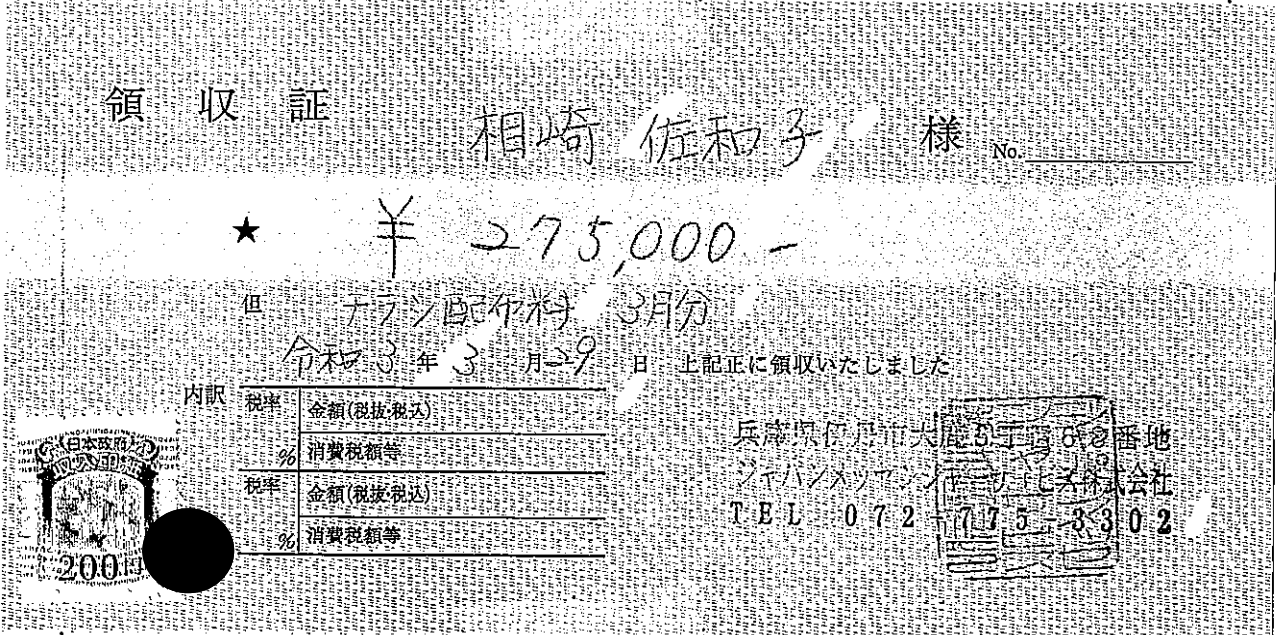 領収証
相崎 佐和子 様 No.
★ ¥ 275,000-
但 チラシ配布料 3月分
令和3年3月29日 上記正に領収いたしました
内訳
税率 金額(税抜・税込)
% 消費税額等
税率 金額(税抜・税込)
% 消費税額等
日本政府
収入印
200円
兵庫県伊丹市大鹿5丁目 番地
ジャパンメッセンジャーサービス株式会社
TEL 072-775-3302